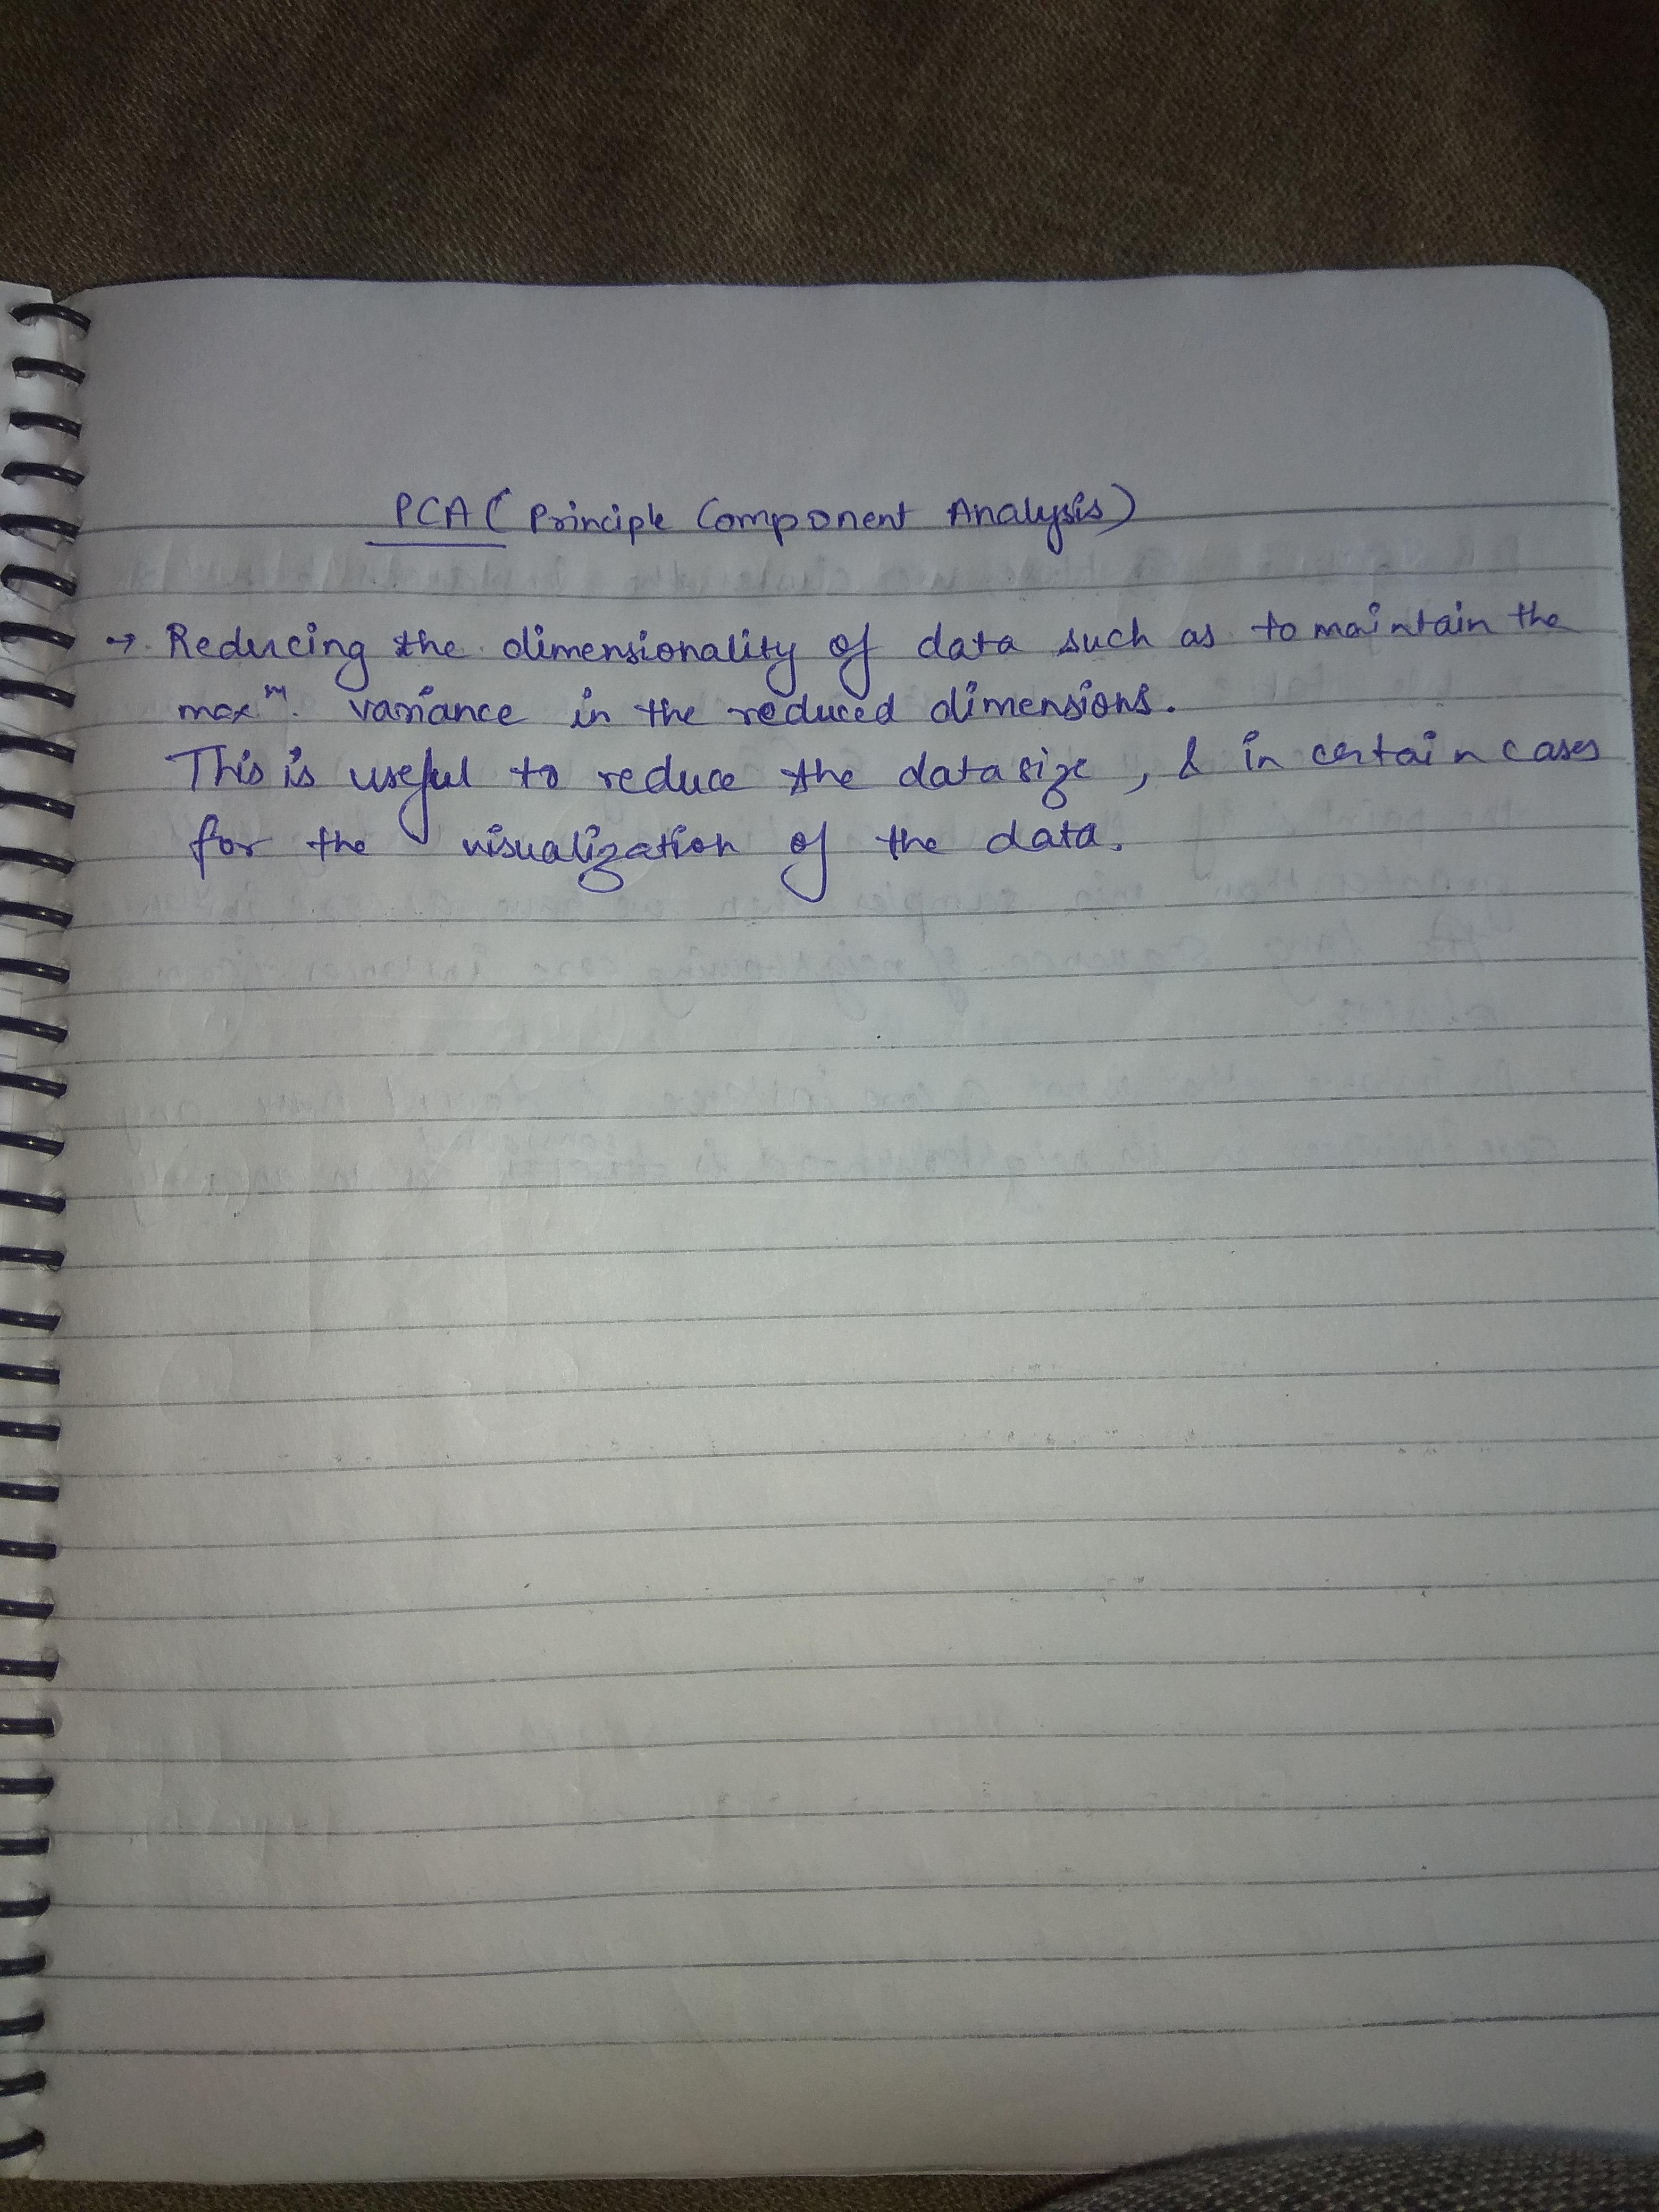 PCA (Principle Component Analysis)
→. Reducing the dimensionality of data such as to maintain the
maxᵐ. variance in the reduced dimensions.
This is useful to reduce the data size, & in certain cases
for the visualization of the data.